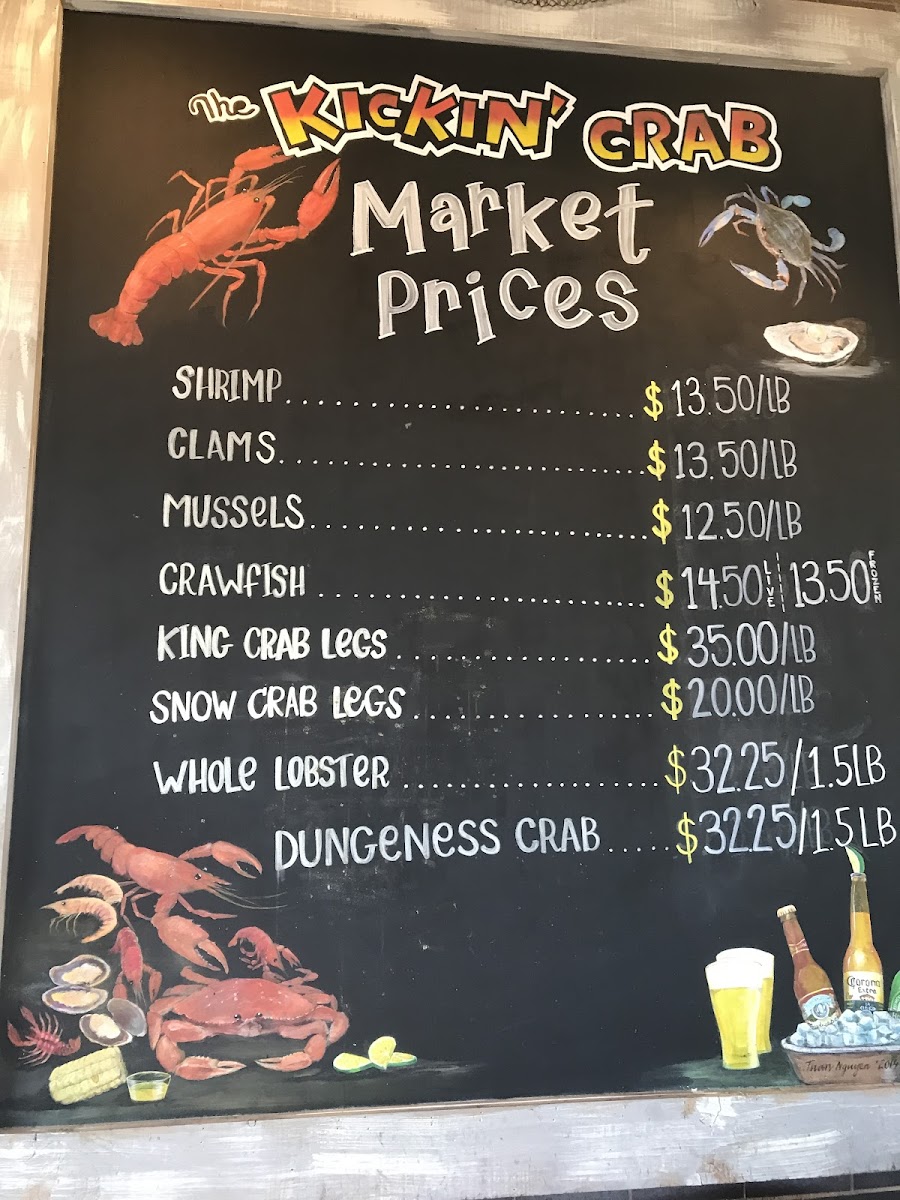 The KICKIN' CRAB
Market
Prices
SHRIMP.......................$13.50/LB
CLAMS........................$13.50/LB
MUSSELS......................$12.50/LB
CRAWFISH.....................$14.50 LIVE | 13.50 FROZEN
KING CRAB LEGS...................$35.00/LB
SNOW CRAB LEGS.................$20.00/LB
WHOLE LOBSTER..................$32.25/1.5LB
DUNGENESS CRAB.....$32.25/1.5LB
Corona
Extra
Tuan Nguyen